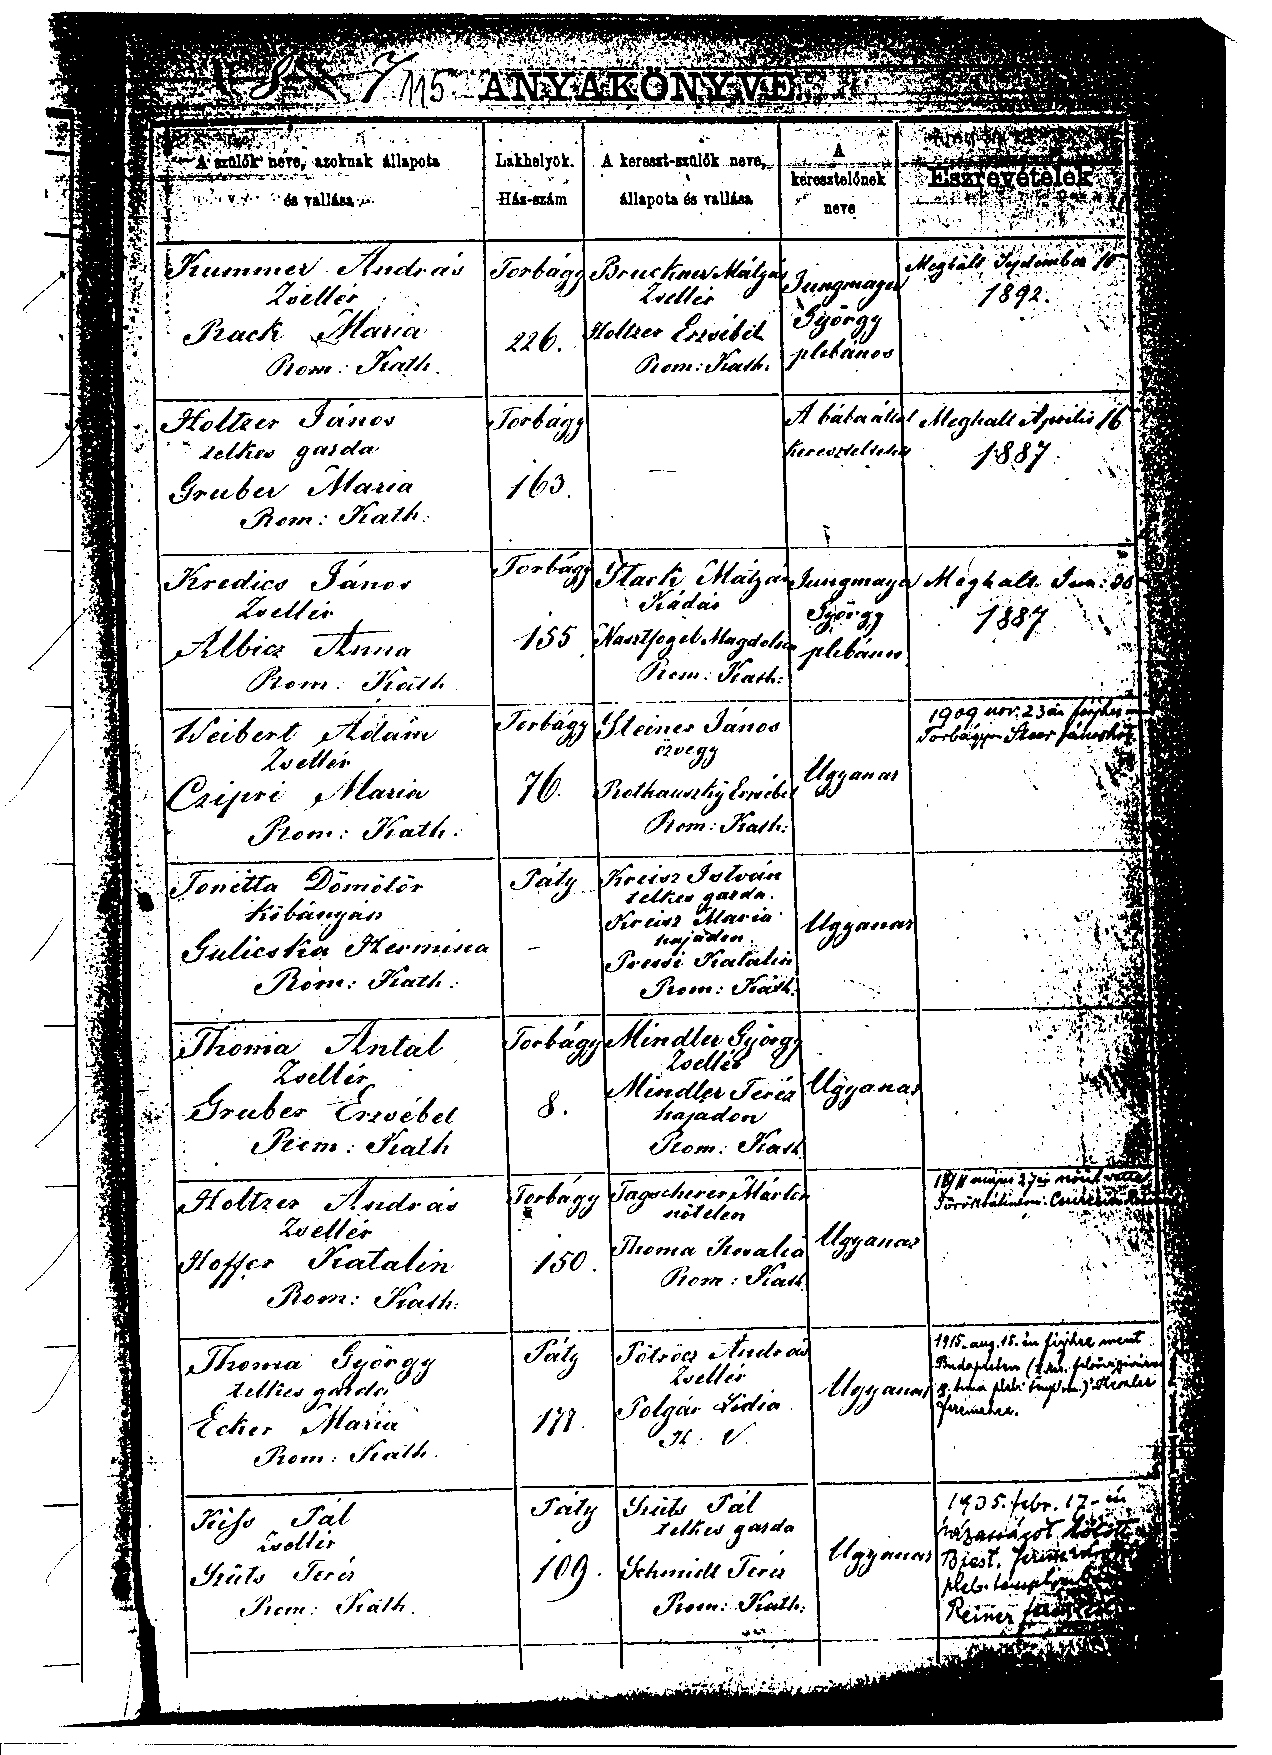 1887 115. ANYAKÖNYVE
A szülők neve, azoknak állapota és vallása
Lakhelyök. Ház-szám
A kereszt-szülők neve, állapota és vallása
A keresztelőnek neve
Észrevételek
Kummer András
Zsellér
Rack Maria
Rom: Kath.
Torbágy
226.
Bruckner Mátyás
Zsellér
Holtzer Erzsébet
Rom: Kath.
Jungmayer
György
plebános
Meghalt September 10
1892.
Holtzer János
telkes gazda
Gruber Maria
Rom: Kath:
Torbágy
163.
—
A bába által
Meghalt Április 16
1887.
Kredics János
Zsellér
Albicz Anna
Rom: Kath
Torbágy
155
Stack Mátyás
Kádár
Magdolna
Rom: Kath:
Jungmayer
György
plebános
Meghalt Jun: 30
1887.
Weibert Ádám
Zsellér
Czipri Maria
Rom: Kath:
Torbágy
76.
Steiner János
özvegy
Rothauszky Erzsébet
Rom: Kath:
Ugyanaz
1909 nov. 23 án férjhez
Torbágyon
Tonetta Dömötör
kőbányás
Gulicska Hermina
Rom: Kath:
Páty
–
Kreisz István
telkes gazda.
Kreisz Maria
hajadon.
Katalin
Rom: Kath:
Ugyanaz
Thoma Antal
Zsellér
Gruber Erzsébet
Rom: Kath
Torbágy
8.
Mindler György
Zsellér
Mindler Teréz
hajadon
Rom: Kath
Ugyanaz
Holtzer András
Zsellér
Hoffer Katalin
Rom: Kath:
Torbágy
150.
Tagscherer Mártin
nőtelen
Thoma Rozalia
Rom: Kath
Ugyanaz
május 27 én nőül vette
Thoma György
telkes gazda
Ecker Maria
Rom: Kath.
Páty
178.
András
Zsellér
Polgár Lidia
H: V.
Ugyanaz
1915. aug. 15. én férjhez ment
Budapesten
Kiss Pál
Zsellér
Süts Teréz
Rom: Kath.
Páty
109.
Süts Pál
telkes gazda
Schmidt Teréz
Rom: Kath:
Ugyanaz
1935. febr. 17-én
házasságot kötött
Reiner